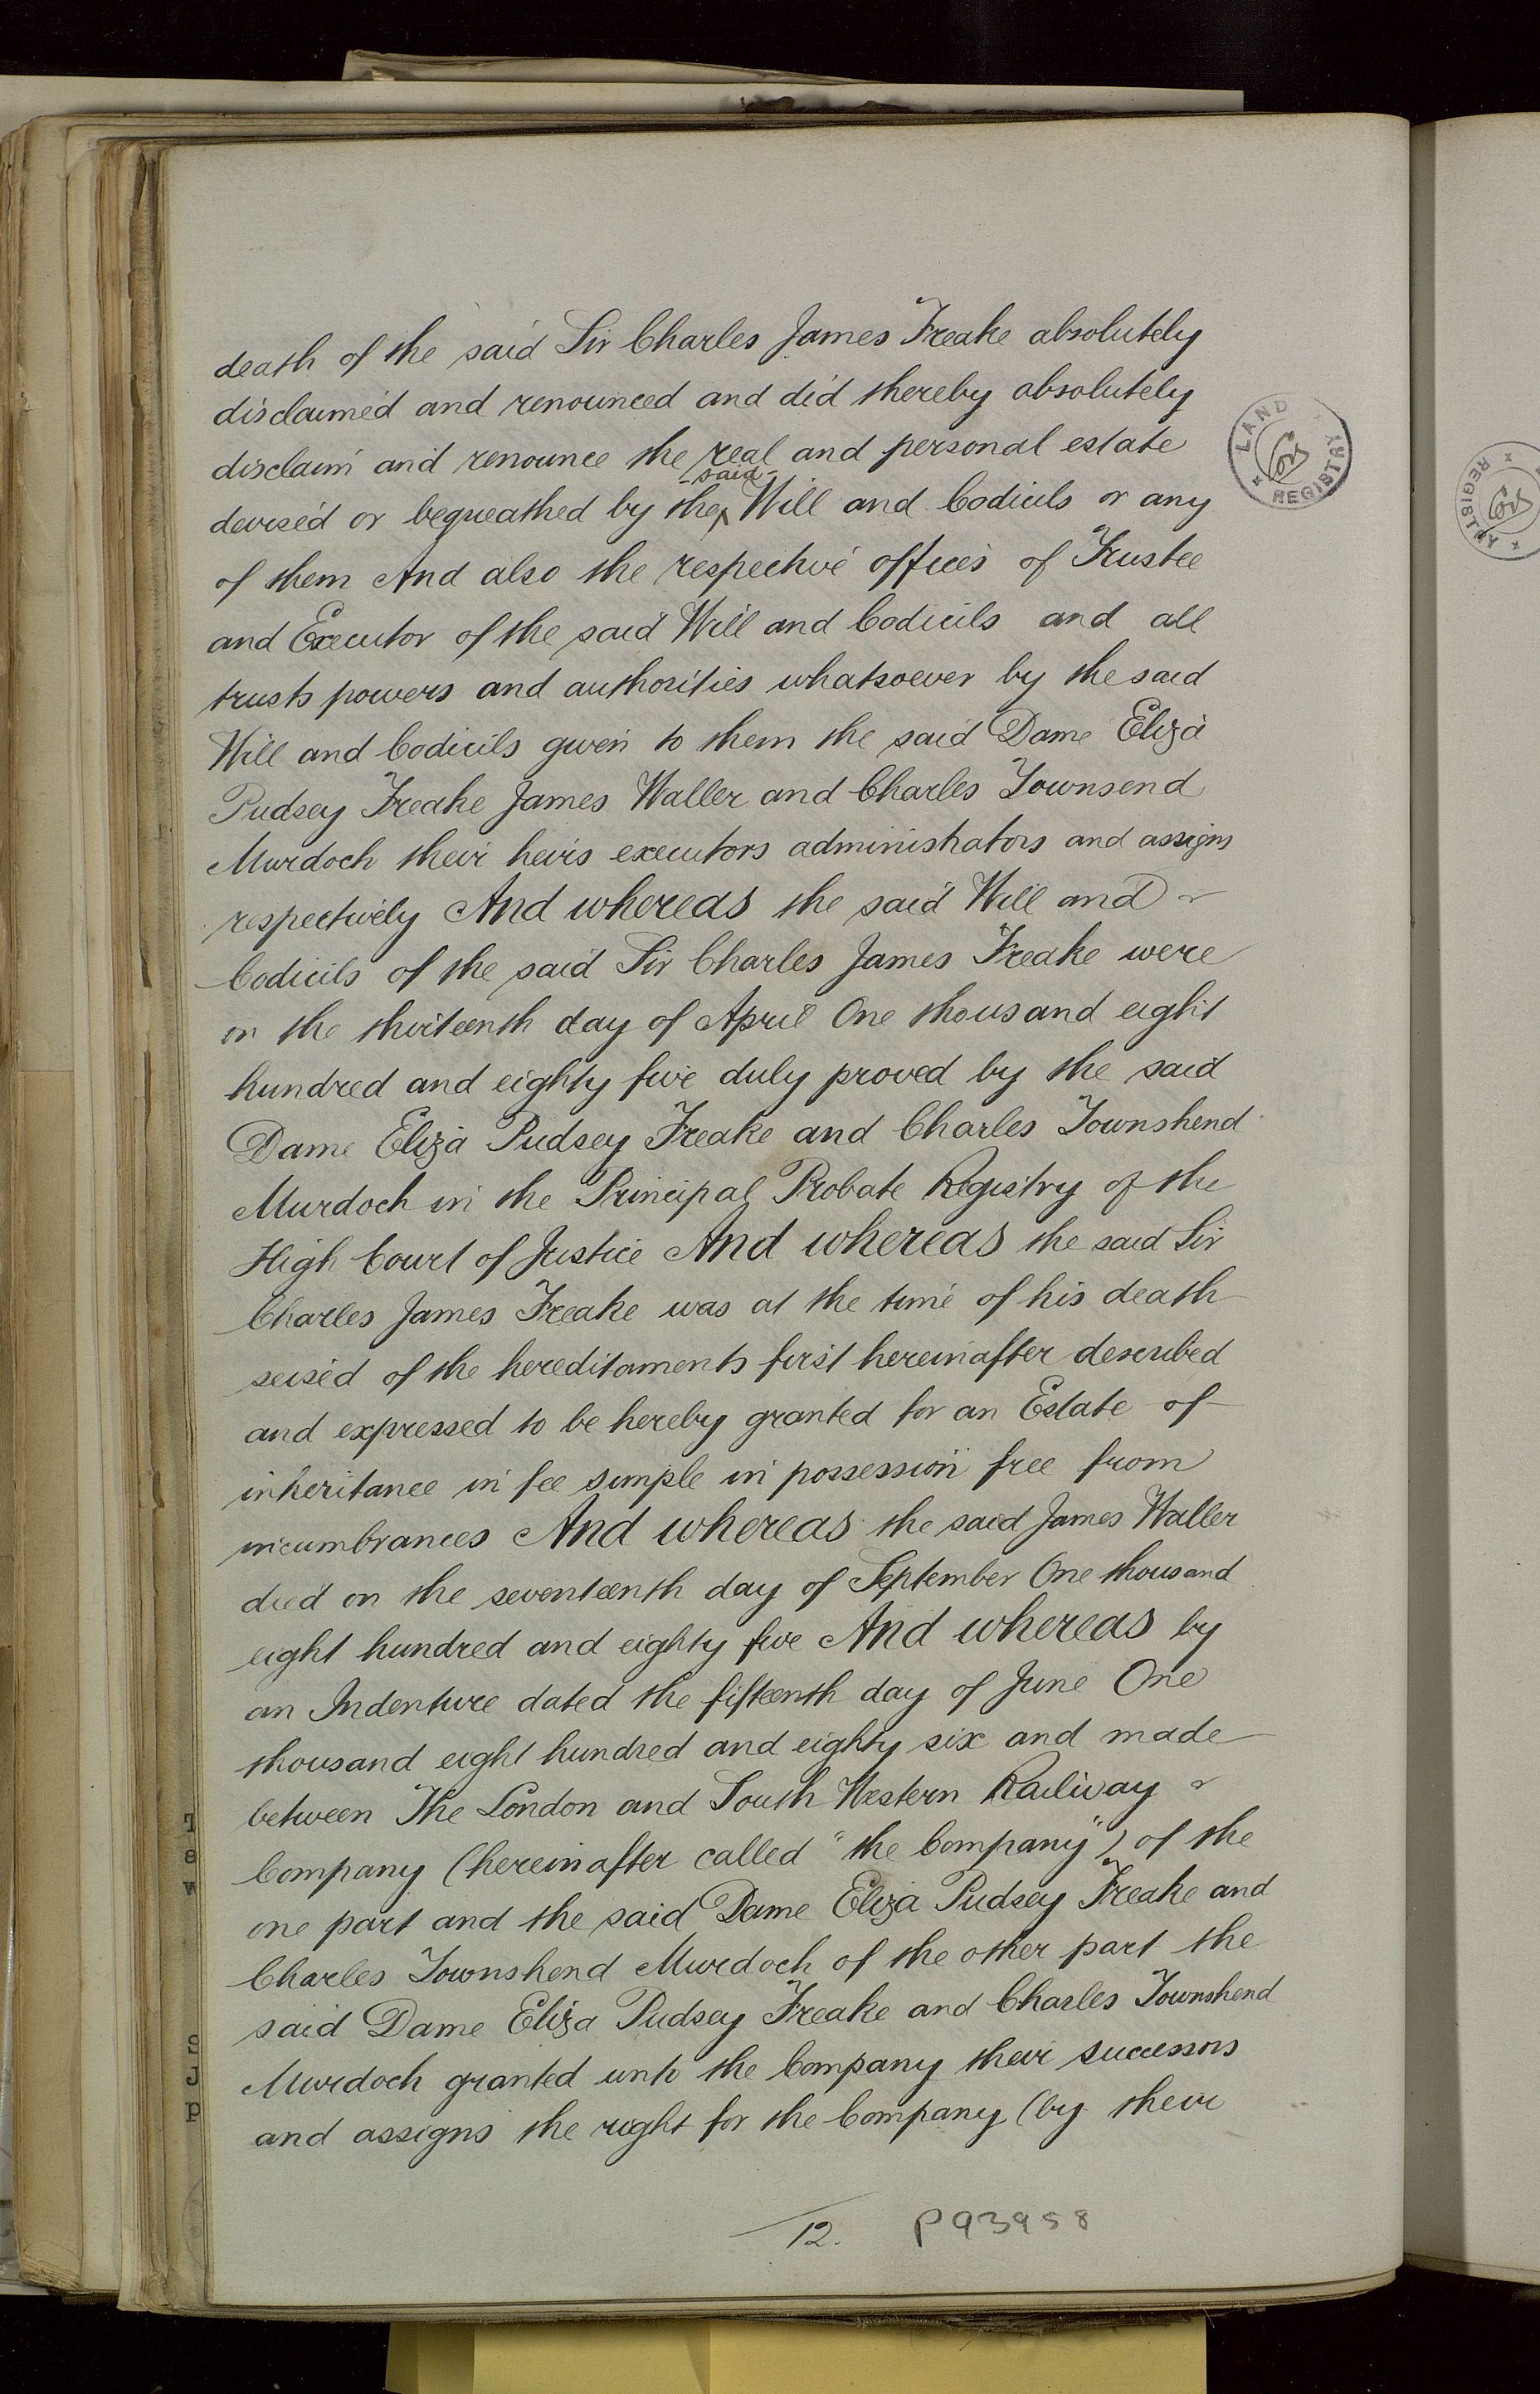 death of the said Sir Charles James Freake absolutely
disclaimed and renounced and did thereby absolutely
disclaim and renounce the real and personal estate
devised or bequeathed by the said Will and Codicils or any
of them And also the respective offices of Trustee
and Executor of the said Will and Codicils and all
trusts powers and authorities whatsoever by the said
Will and Codicils given to them the said Dame Eliza
Pudsey Freake James Waller and Charles Townsend
Murdoch their heirs executors administrators and assigns
respectively And whereas the said Will and
Codicils of the said Sir Charles James Freake were
on the thirteenth day of April One thousand eight
hundred and eighty five duly proved by the said
Dame Eliza Pudsey Freake and Charles Townshend
Murdoch in the Principal Probate Registry of the
High Court of Justice And whereas the said Sir
Charles James Freake was at the time of his death
seised of the hereditaments first hereinafter described
and expressed to be hereby granted for an Estate of
inheritance in fee simple in possession free from
incumbrances And whereas the said James Waller
died on the seventeenth day of September One thousand
eight hundred and eighty five And whereas by
an Indenture dated the fifteenth day of June One
thousand eight hundred and eighty six and made
between The London and South Western Railway
Company (hereinafter called "the Company") of the
one part and the said Dame Eliza Pudsey Freake and
Charles Townshend Murdoch of the other part the
said Dame Eliza Pudsey Freake and Charles Townshend
Murdoch granted unto the Company their successors
and assigns the right for the Company (by their
12. P93958
LAND REGISTRY
REGISTRY